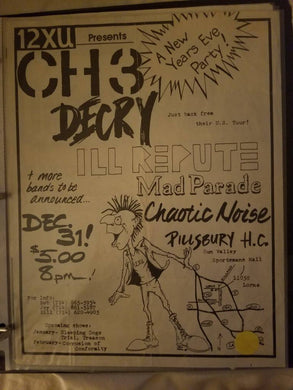 12XU Presents
A New
Years Eve
Party!
CH3
DECRY
Just back free
their U.S. Tour!
ILL REPUTE
Mad Parade
+ more
bands to be
announced...
Chaotic Noise
PILLSBURY H.C.
DEC.
31!
$5.00
8pm!
Sun Valley
Sportsmans Hall
Lorne
For info:
Upcoming shows:
January- Sleeping Dogs
Trial, Treason
February- Corrosion of
Conformity